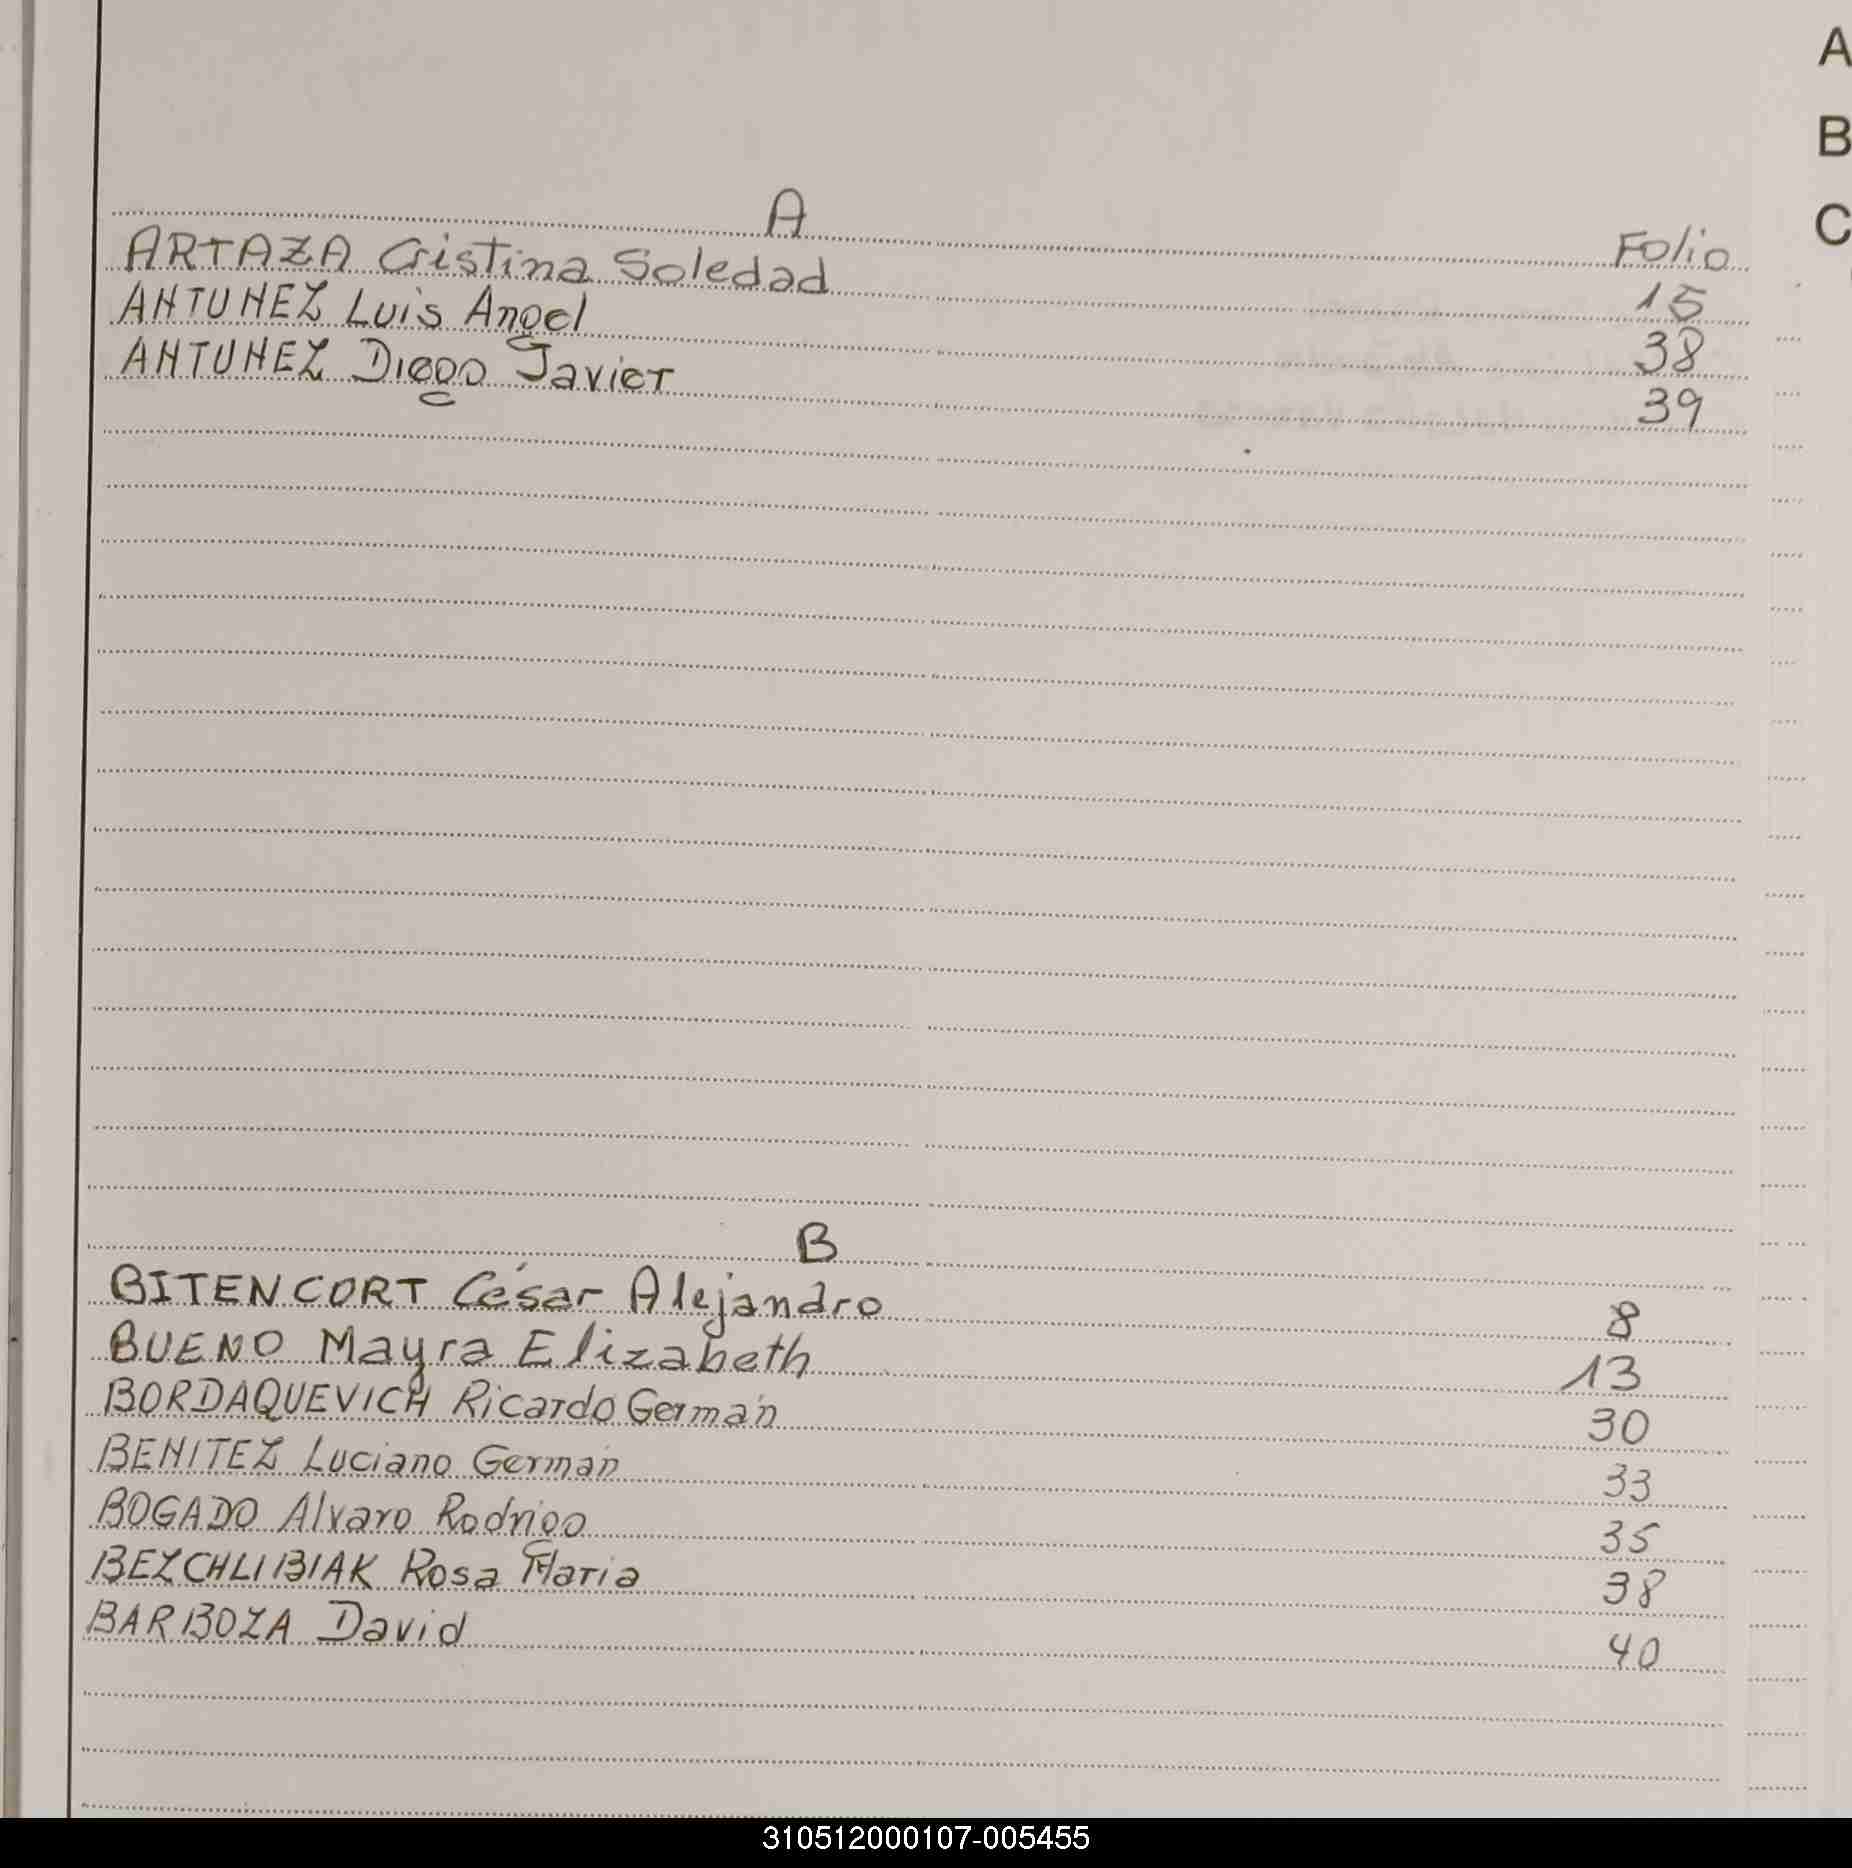 A
B
C
A
Folio
ARTAZA Cristina Soledad 15
ANTUNEZ Luis Angel 38
ANTUNEZ Diego Javier 39
B
BITENCORT César Alejandro 8
BUENO Mayra Elizabeth 13
BORDAQUEVICH Ricardo Germán 30
BENITEZ Luciano Germán 33
BOGADO Alvaro Rodrigo 35
BEZCHLIBIAK Rosa Maria 38
BARBOZA David 40
310512000107-005455